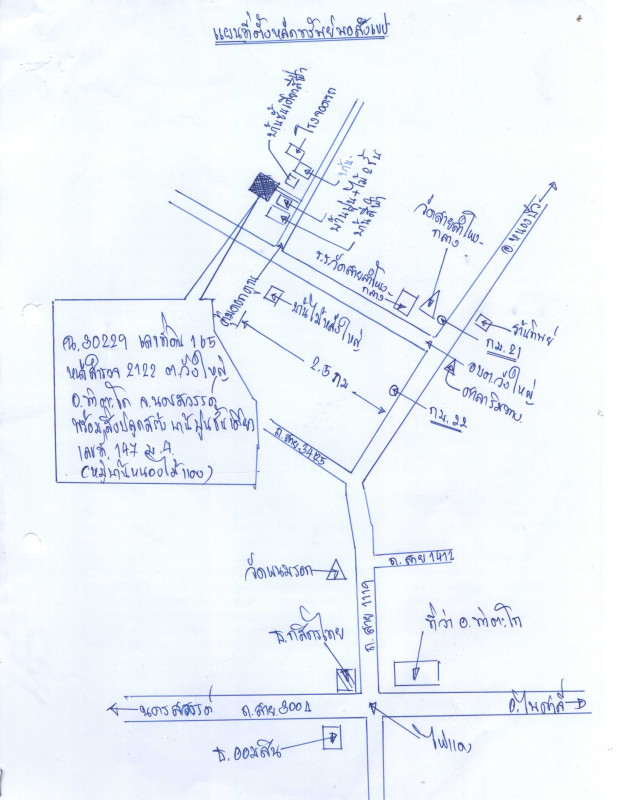 แผนที่ตั้งหลักทรัพย์พอสังเขป
บ้านชั้นเดียวสีฟ้า
โรงจอดรถ
บ้านปูน+ไม้ 2 ชั้น
บ้านสีฟ้า
วัดสายลำโพง-
กลาง
อ.หนองบัว
ร.ร.วัดสายลำโพง-
กลาง
บ้านไม้หลังใหญ่
กม.21
ร้านทิพย์
อบต.วังใหญ่
2.5 กม
กม.22
ฉน.30229 เลขที่ดิน 165
หน้าสำรวจ 2122 ต.วังใหญ่
อ.ท่าตะโก จ.นครสวรรค์
พร้อมสิ่งปลูกสร้าง บ้านปูนชั้นเดียว
เลขที่ 147 ม.4
(หมู่บ้านหนองไม้แดง)
ถ.สาย 3475
ถ.สาย 1412
วัดพนมรอก
ถ.สาย 1119
ธ.กสิกรไทย
ที่ว่า อ.ท่าตะโก
นครสวรรค์
ถ.สาย 3004
อ.ไพศาลี
ธ.ออมสิน
ไฟแดง